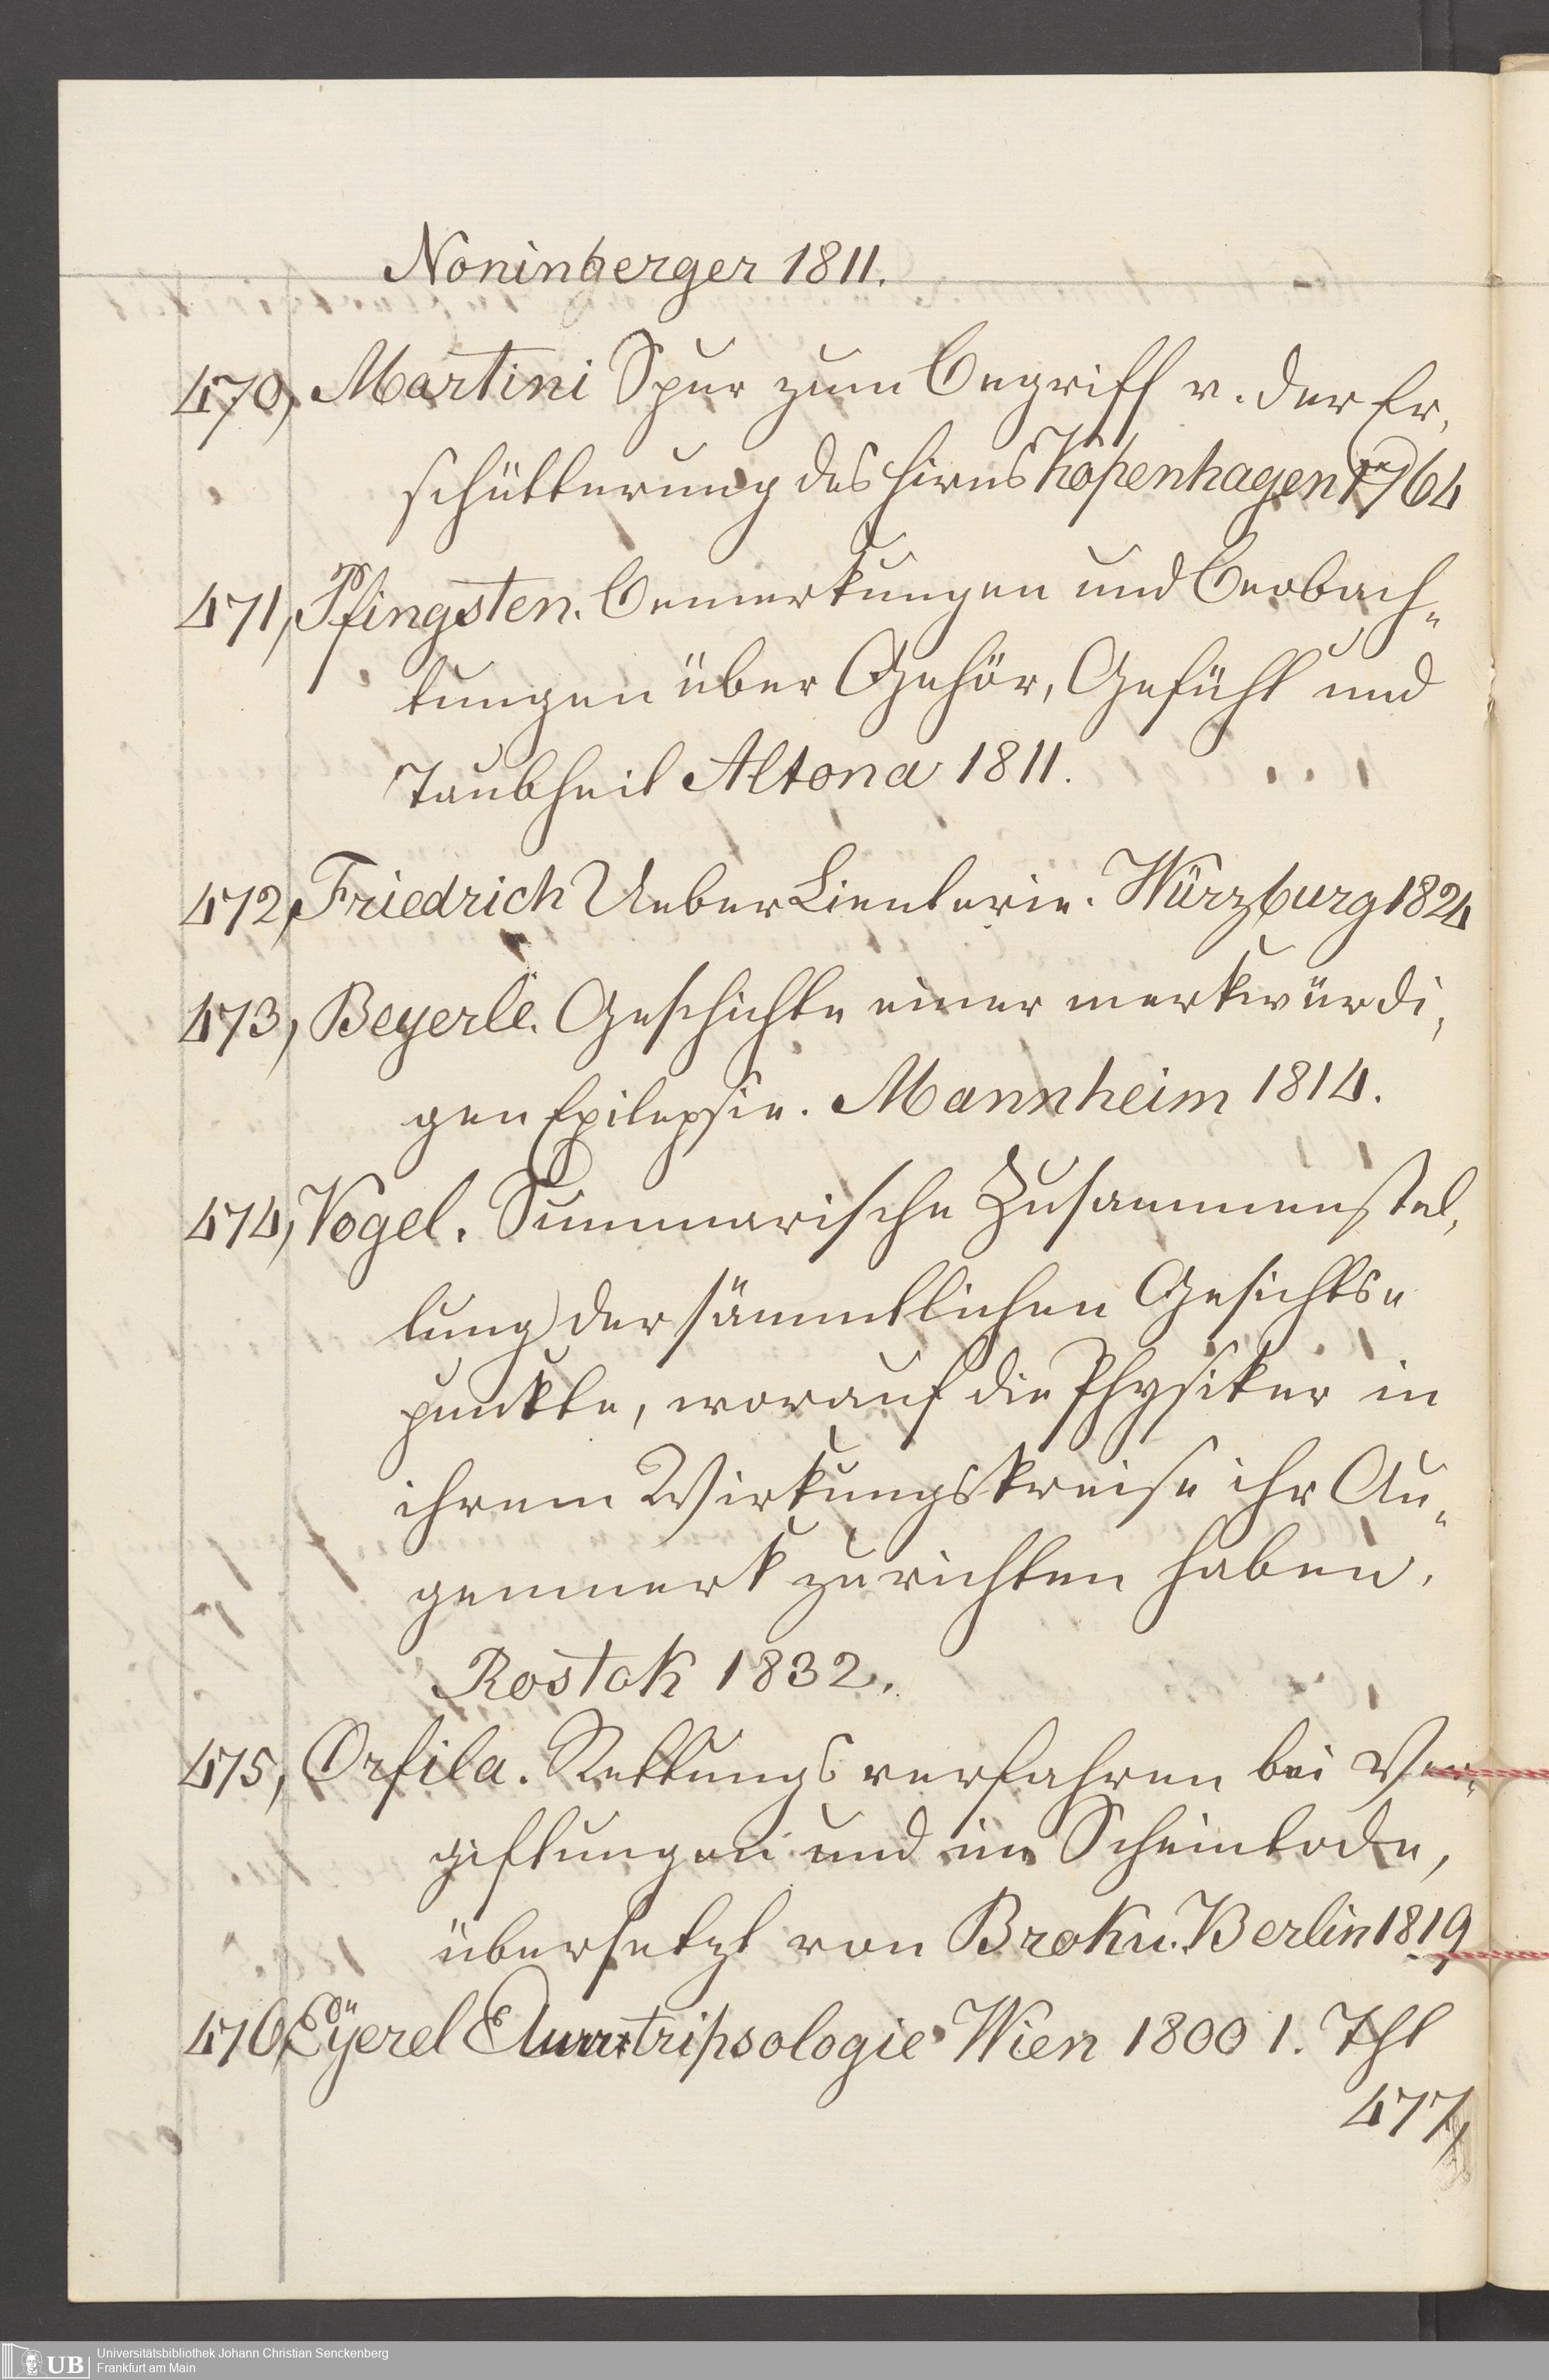 Noninberger 1811.
470, Martini Spur zum Begriff v. der Er,
schütterung des Hirns Kopenhagen 1764
471, Pfingsten. Bemerkungen und Beobach„
tungen über Gehör, Gefühl und
Taubheit Altona 1811.
472, Friedrich Ueber Lienterie. Würzburg 1824
473, Beyerle. Geschichte einer merkwürdi,
gen Epilepsie. Mannheim 1814.
474, Vogel. Summarische Zusammenstel,
lung der sämmtlichen Gesichts„
punkte, worauf die Physiker in
ihrem Wirkungskreise ihr Au„
genmerk zu richten haben.
Rostok 1832.
475, Orfila. Rettungsverfahren bei Ver„
giftungen und im Scheintode,
übersetzt von Berlin 1819
476, Eÿerel Wien 1800 1. Thl
477,
Universitätsbibliothek Johann Christian Senckenberg
Frankfurt am Main
UB